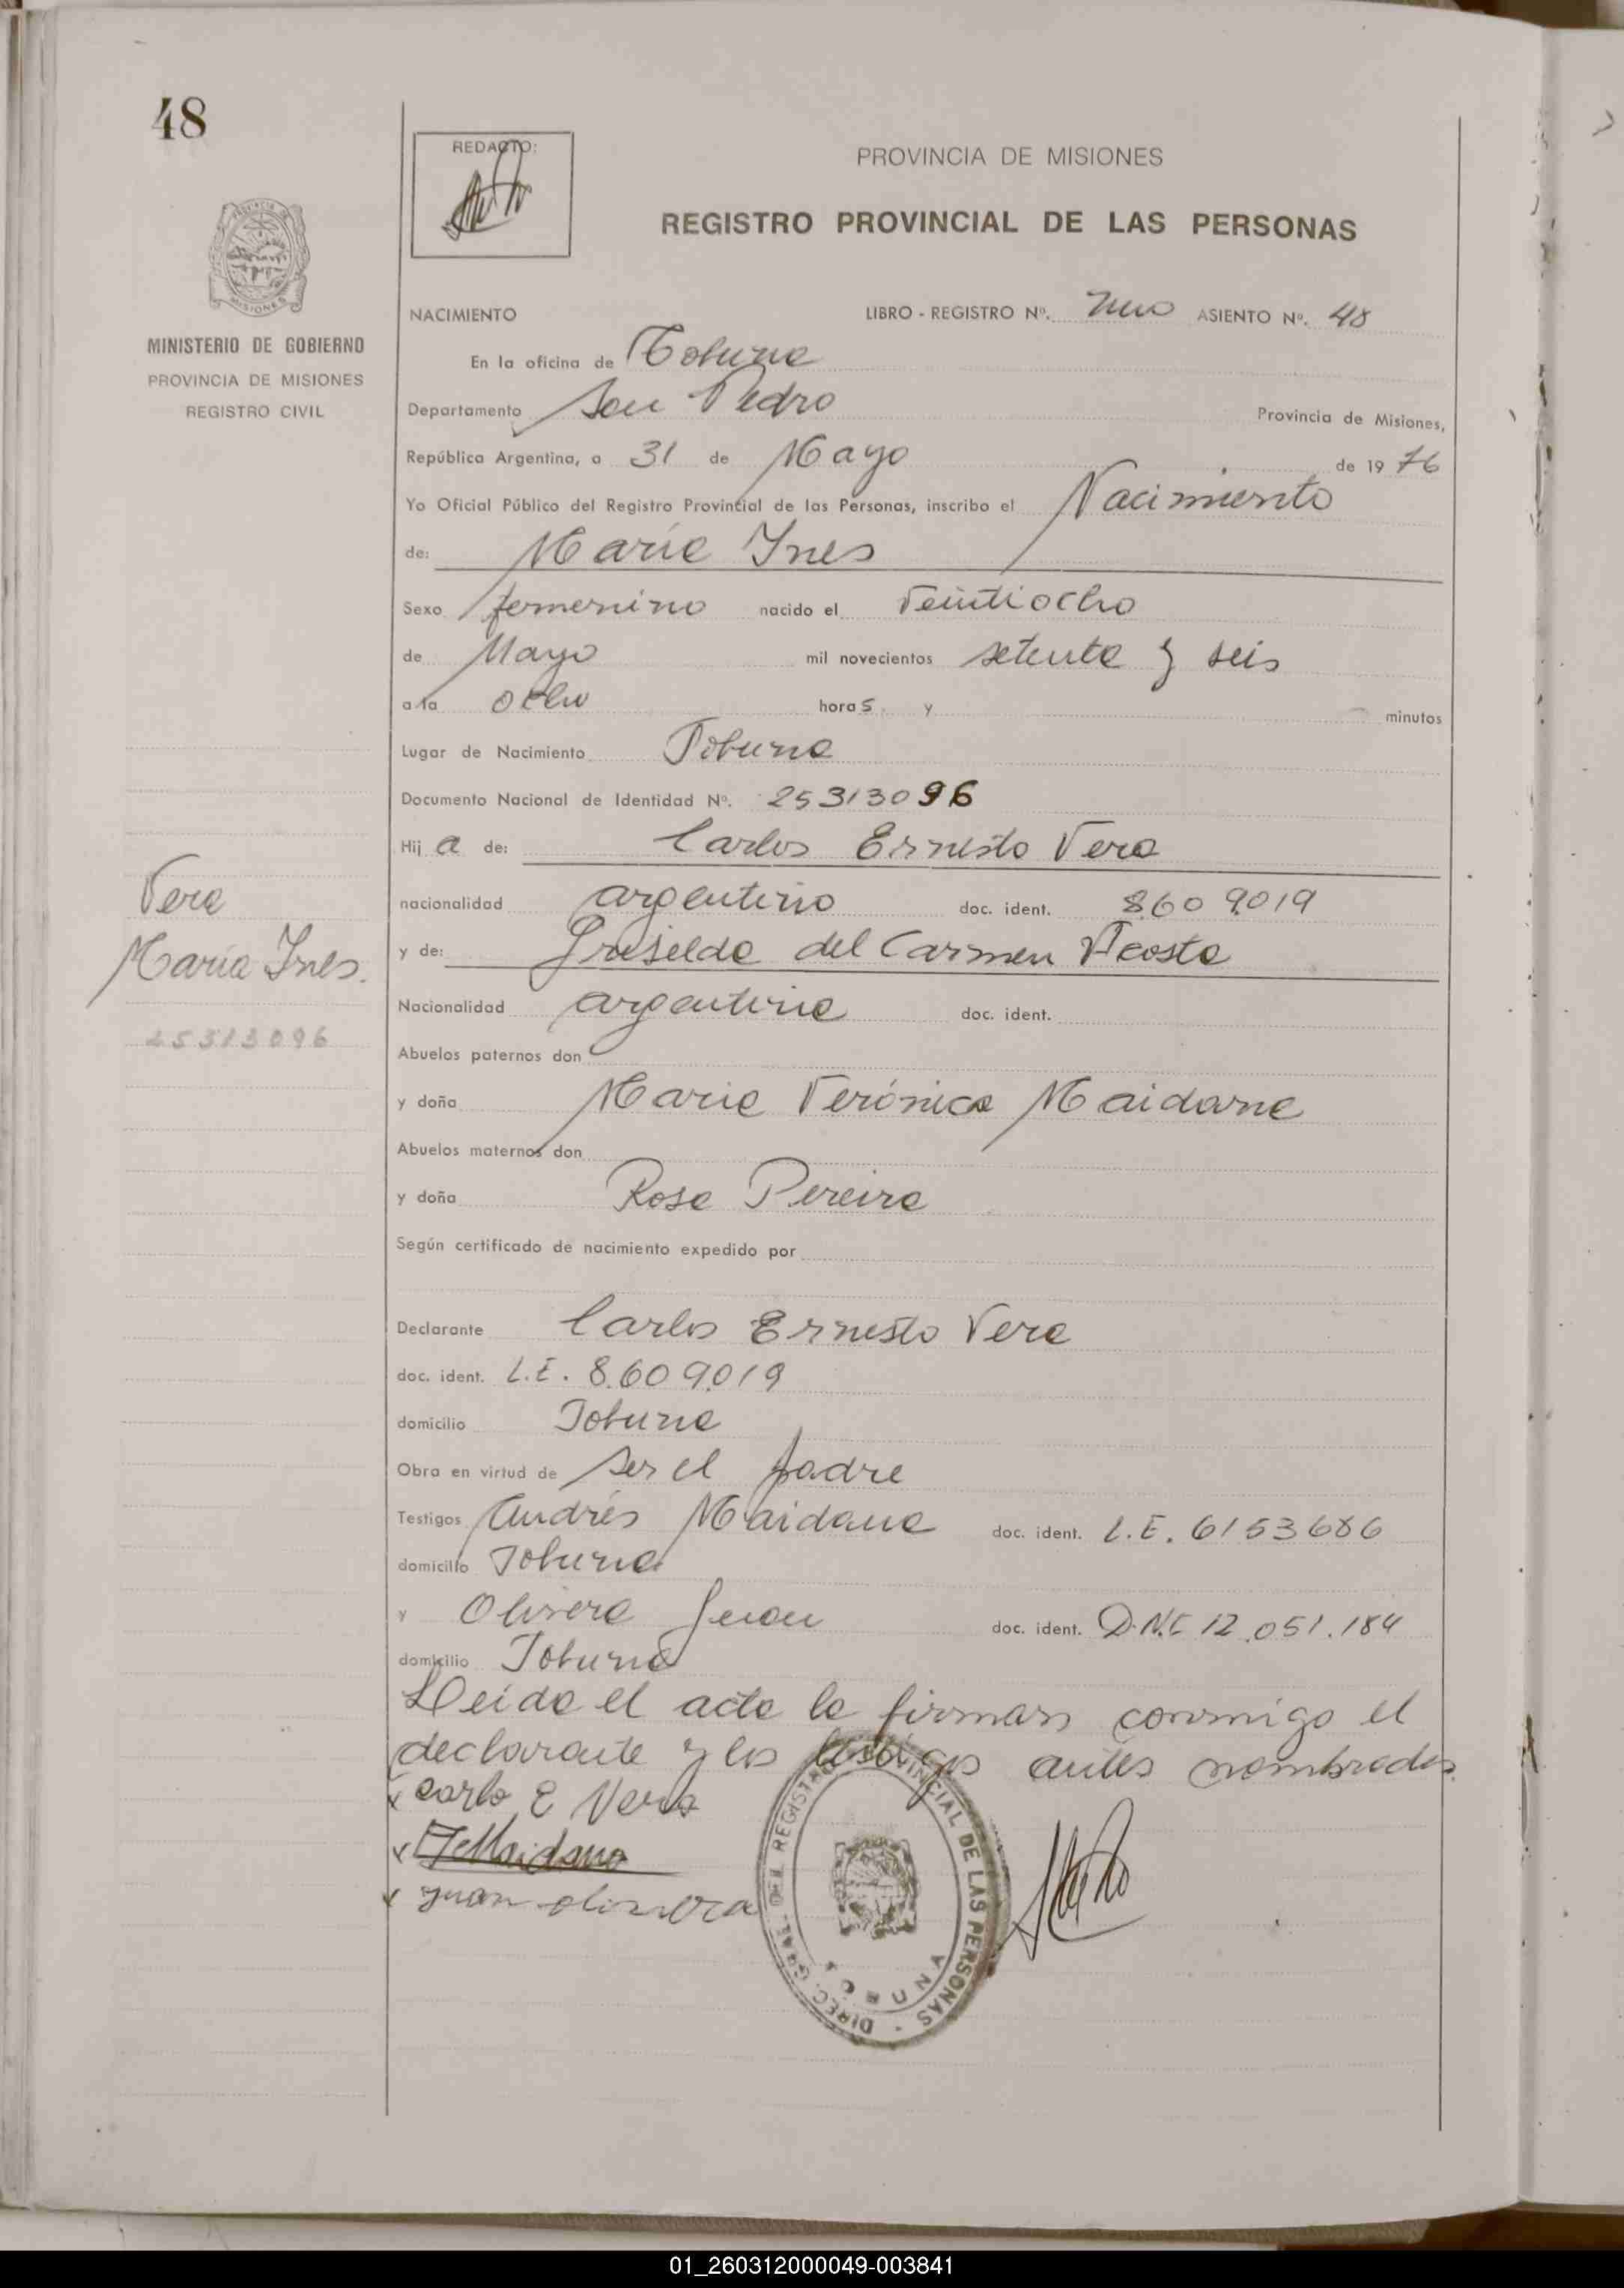 48
REDACTO:
PROVINCIA DE MISIONES
REGISTRO PROVINCIAL DE LAS PERSONAS
PROVINCIA DE
MISIONES
MINISTERIO DE GOBIERNO
PROVINCIA DE MISIONES
REGISTRO CIVIL
NACIMIENTO LIBRO - REGISTRO Nº. Uno ASIENTO Nº. 48
En la oficina de Tobuna
Departamento San Pedro Provincia de Misiones,
República Argentina, a 31 de Mayo de 1976
Yo Oficial Público del Registro Provincial de las Personas, inscribo el Nacimiento
de: María Ines
Sexo femenino nacido el Veintiocho
de Mayo mil novecientos setenta y seis
a la ocho horas y minutos
Lugar de Nacimiento Tobuna
Documento Nacional de Identidad Nº. 25313096
Hija de: Carlos Ernesto Vera
nacionalidad argentino doc. ident. 8.609.019
y de: Griselda del Carmen Acosta
Nacionalidad argentina doc. ident.
Vera
María Ines.
25313096
Abuelos paternos don
y doña María Verónica Maidana
Abuelos maternos don
y doña Rosa Pereira
Según certificado de nacimiento expedido por
Declarante Carlos Ernesto Vera
doc. ident. L.E. 8.609.019
domicilio Tobuna
Obra en virtud de ser el padre
Testigos Andrés Maidana doc. ident. L.E. 6153686
domicilio Tobuna
y Olivera Juan doc. ident. D.N.I 12.051.184
domicilio Tobuna
Leida el acta la firman conmigo el
declarante y los testigos antes nombrados.
x Carlo E Vera
x Maidana
x Juan olivera
DIREC. GRAL. DEL REGISTRO PROVINCIAL DE LAS PERSONAS -
TOBUNA
01_260312000049-003841